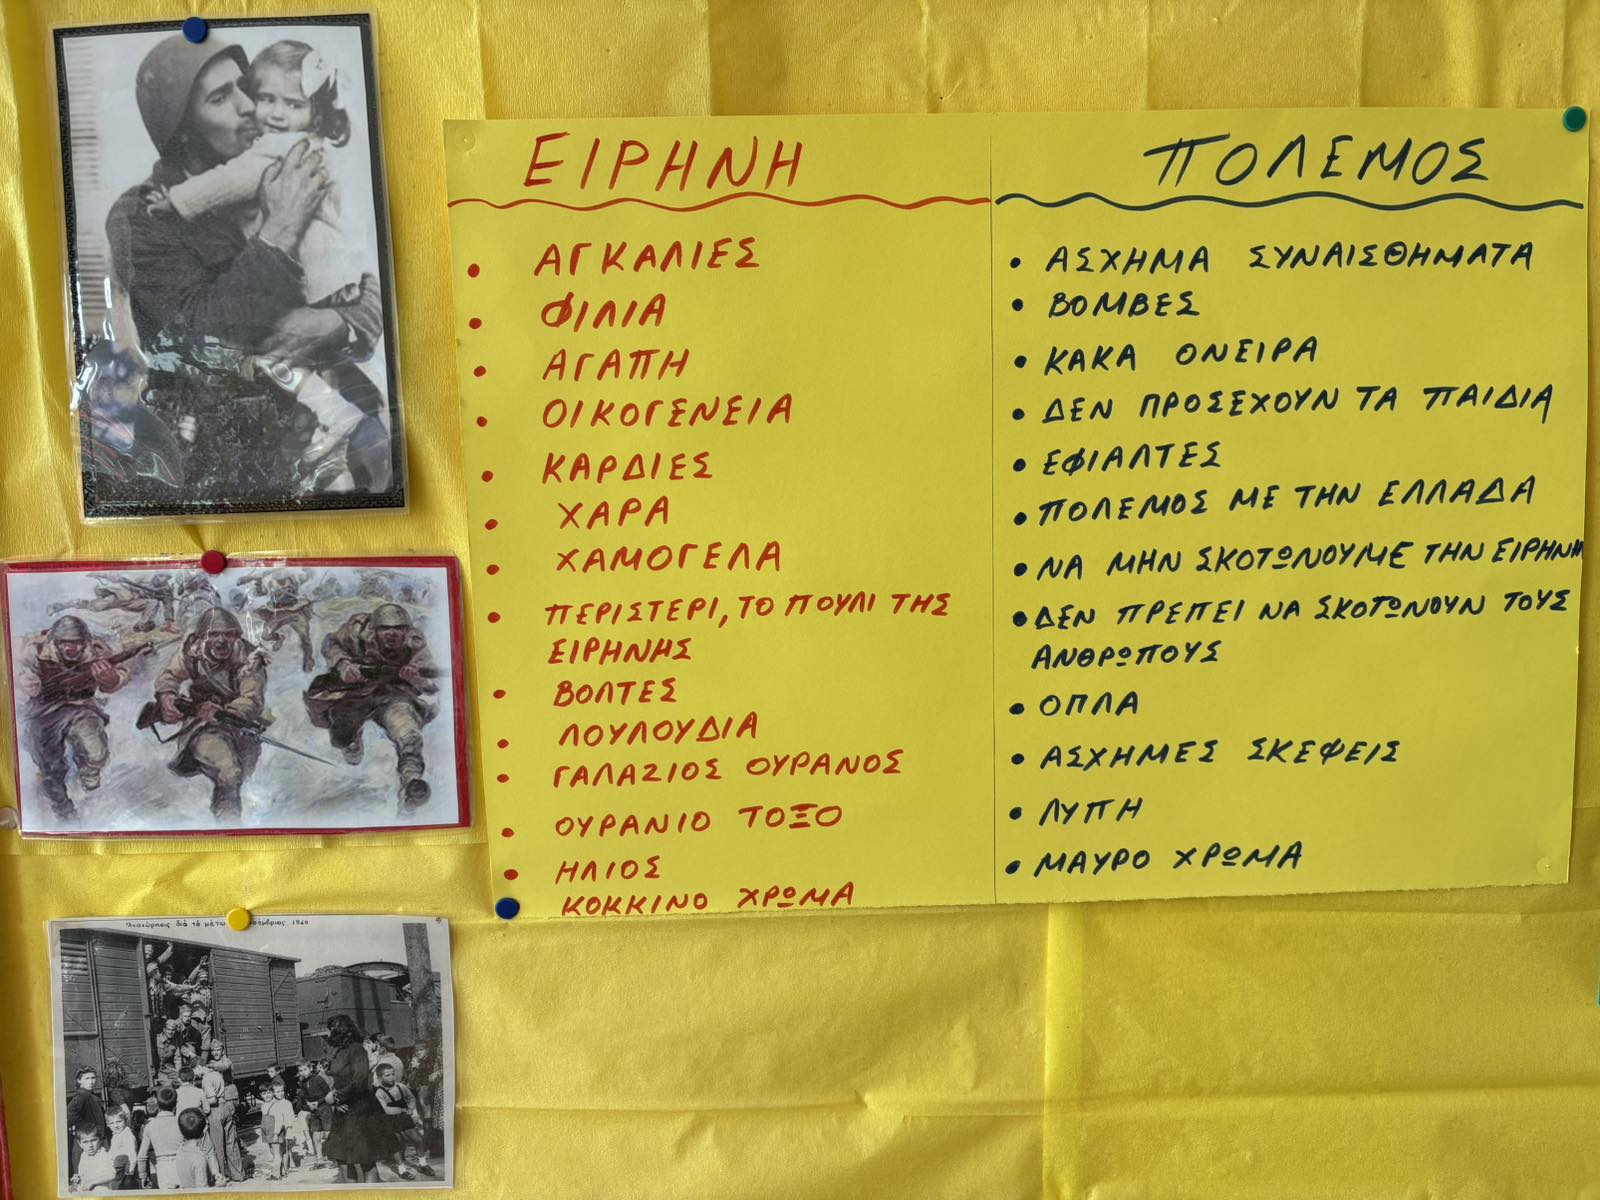 ΕΙΡΗΝΗ
• ΑΓΚΑΛΙΕΣ
• ΦΙΛΙΑ
• ΑΓΑΠΗ
• ΟΙΚΟΓΕΝΕΙΑ
• ΚΑΡΔΙΕΣ
• ΧΑΡΑ
• ΧΑΜΟΓΕΛΑ
• ΠΕΡΙΣΤΕΡΙ, ΤΟ ΠΟΥΛΙ ΤΗΣ
ΕΙΡΗΝΗΣ
• ΒΟΛΤΕΣ
• ΛΟΥΛΟΥΔΙΑ
• ΓΑΛΑΖΙΟΣ ΟΥΡΑΝΟΣ
• ΟΥΡΑΝΙΟ ΤΟΞΟ
• ΗΛΙΟΣ
ΚΟΚΚΙΝΟ ΧΡΩΜΑ
ΠΟΛΕΜΟΣ
• ΑΣΧΗΜΑ ΣΥΝΑΙΣΘΗΜΑΤΑ
• ΒΟΜΒΕΣ
• ΚΑΚΑ ΟΝΕΙΡΑ
• ΔΕΝ ΠΡΟΣΕΧΟΥΝ ΤΑ ΠΑΙΔΙΑ
• ΕΦΙΑΛΤΕΣ
• ΠΟΛΕΜΟΣ ΜΕ ΤΗΝ ΕΛΛΑΔΑ
• ΝΑ ΜΗΝ ΣΚΟΤΩΝΟΥΜΕ ΤΗΝ ΕΙΡΗΝΗ
• ΔΕΝ ΠΡΕΠΕΙ ΝΑ ΣΚΟΤΩΝΟΥΝ ΤΟΥΣ
ΑΝΘΡΩΠΟΥΣ
• ΟΠΛΑ
• ΑΣΧΗΜΕΣ ΣΚΕΨΕΙΣ
• ΛΥΠΗ
• ΜΑΥΡΟ ΧΡΩΜΑ
διά τό 1940